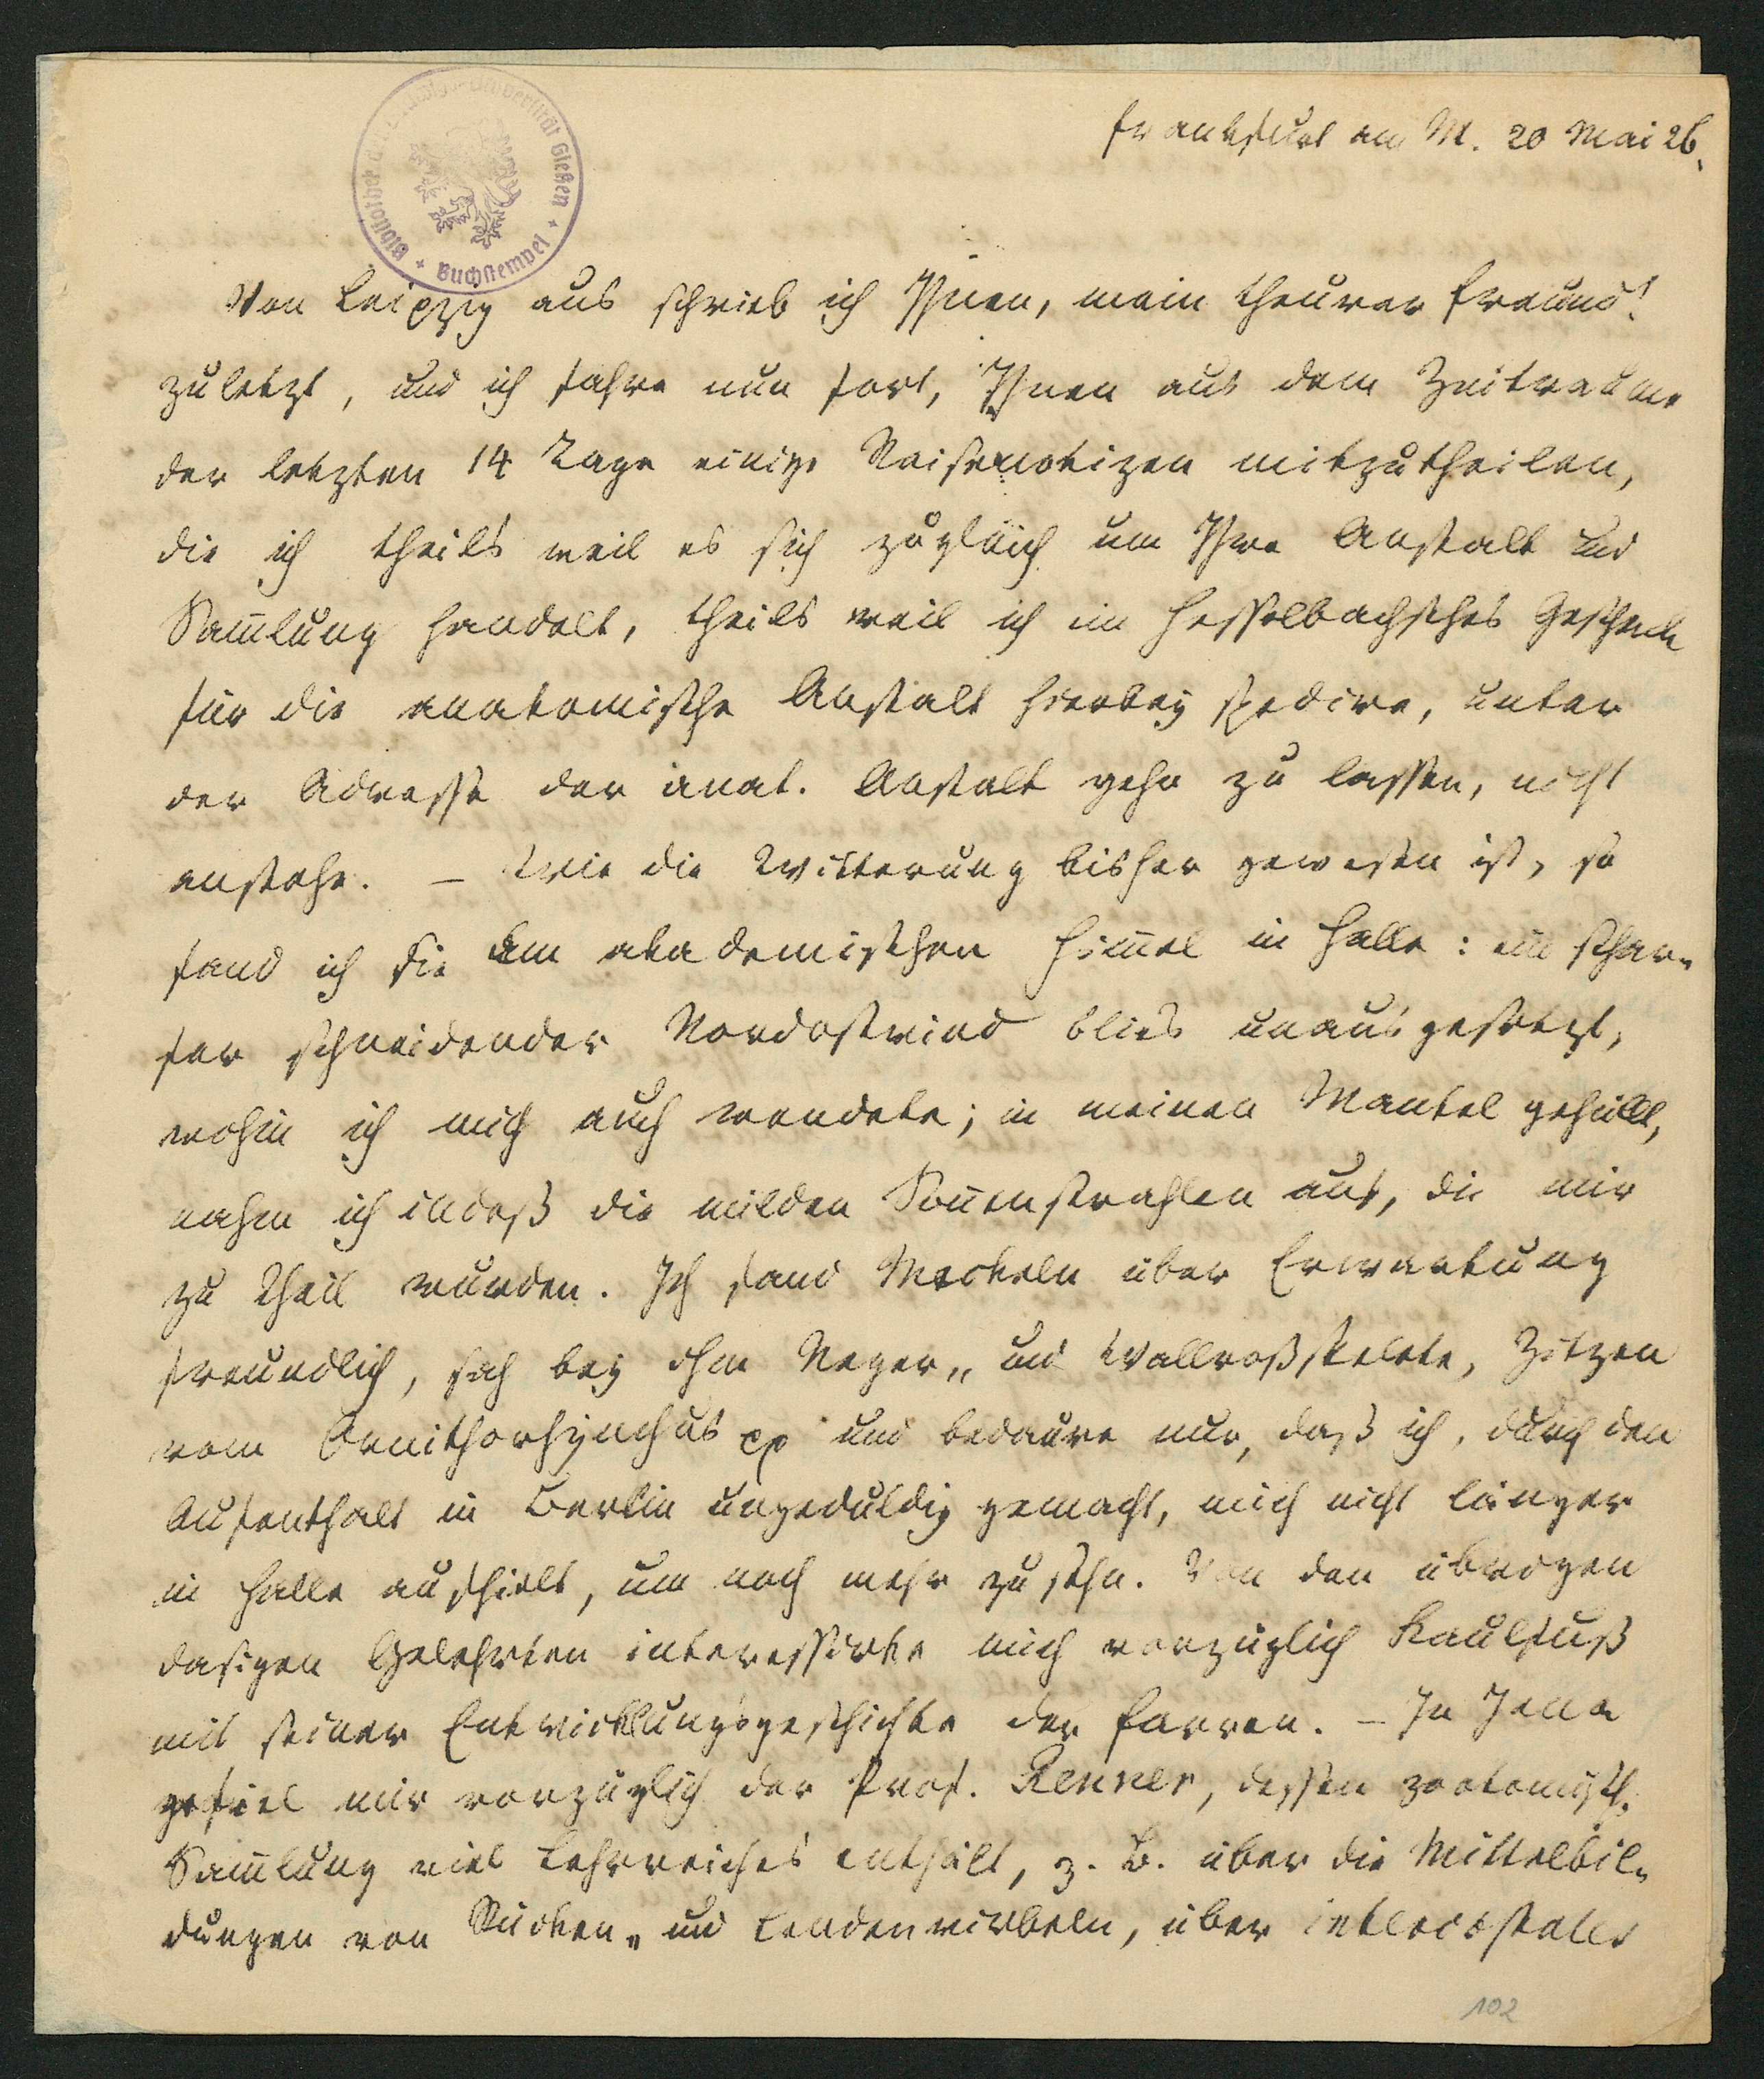 Frankfurt am M. 20 Mai 26.
Bibliothek der Ludwigs-Universität Gießen * Buchstempel *
Von Leipzig aus schrieb ich Ihnen, mein theurer Freund!
zuletzt, und ich fahre nun fort, Ihnen aus dem Zeitraume
der letzten 14 Tage einige Reisenotizen mitzutheilen,
die ich theils weil es sich zugleich um Ihre Anstalt und
Sam̄lung handelt, theils weil ich ein Hesselbachsches Geschenk
für die anatomische Anstalt hierbey spedire, unter
der Adresse der anat. Anstalt gehn zu lassen, nicht
anstehe. – Wie die Witterung bisher gewesen ist, so
fand ich sie am akademischen Him̄el in Halle: ein schar„
fer schneidender Nordostwind blies unausgesetzt,
wohin ich mich auch wendete; in meinen Mantel gehüllt,
nahm ich indeß die milden Son̄enstrahlen auf, die mir
zu Theil wurden. Ich fand Meckeln über Erwartung
freundlich, sah bey ihm Neger„ und Wallroßskelete, Zitzen
vom Ornithorhynchus pp und bedaure nur, daß ich, durch den
Aufenthalt in Berlin ungeduldig gemacht, mich nicht länger
in Halle aufhielt, um noch mehr zu sehn. Von den übrigen
dasigen Gelehrten interessirte mich vorzüglich Kaulfuß
mit seiner Entwicklungsgeschichte der Farren. – In Jena
gefiel mir vorzüglich der Prof. Renner, dessen zootomisch.
Sam̄lung viel Lehrreiches enthält, z. B. über die Mittelbil„
dungen von Rücken„ und Lendenwirbeln, über
102